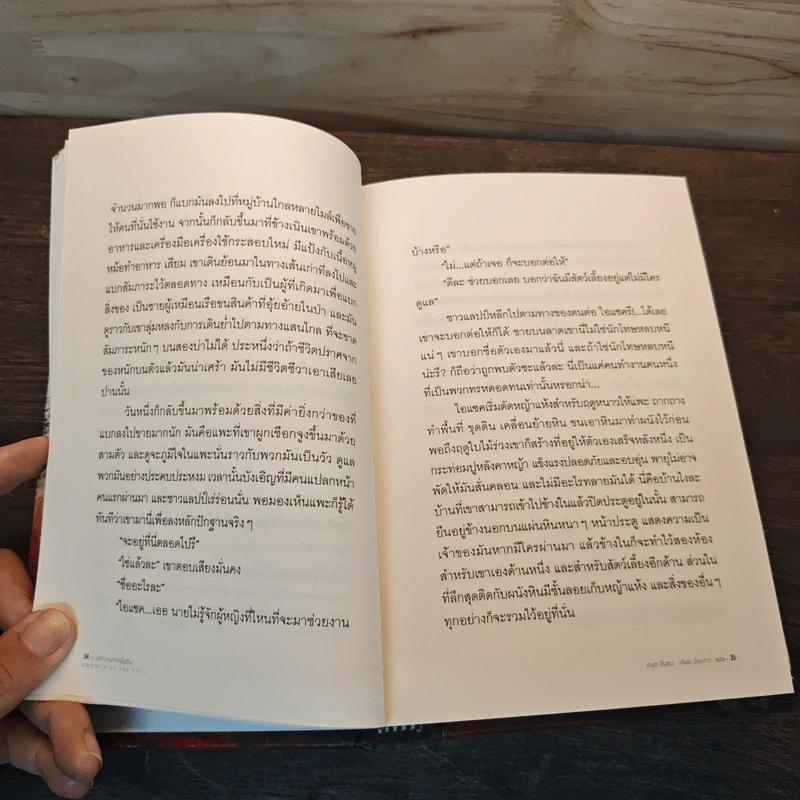 จำนวนมากพอ ก็แบกมันลงไปที่หมู่บ้านไกลหลายไมล์เพื่อขาย
ให้คนที่นั่นใช้งาน จากนั้นก็กลับขึ้นมาที่ข้างเนินเขาพร้อมด้วย
อาหารและเครื่องมือเครื่องใช้กระสอบใหม่ มีแป้งกับเนื้อหมู
หม้อทำอาหาร เสียม เขาเดินย้อนมาในทางเส้นเก่าที่ลงไปและ
แบกสัมภาระไว้ตลอดทาง เหมือนกับเป็นผู้ที่เกิดมาเพื่อแบก
สิ่งของ เป็นชายผู้เหมือนเรือขนสินค้าที่อุ้ยอ้ายในป่า และมัน
ดูราวกับเขาลุ่มหลงกับการเดินย่ำไปตามทางแสนไกล ที่จะขาด
สัมภาระหนักๆ บนสองบ่าไม่ได้ ประหนึ่งว่าถ้าชีวิตปราศจาก
ของหนักบนตัวแล้วมันน่าเศร้า มันไม่มีชีวิตชีวาเอาเสียเลย
ปานนั้น
วันหนึ่งก็กลับขึ้นมาพร้อมด้วยสิ่งที่มีค่ายิ่งกว่าของที่
แบกลงไปขายมากนัก มันคือแพะที่เขาผูกเชือกจูงขึ้นมาด้วย
สามตัว และดูจะภูมิใจในแพะนั่นราวกับพวกมันเป็นวัว ดูแล
พวกมันอย่างประคบประหงม เวลานั้นบังเอิญที่มีคนแปลกหน้า
คนแรกผ่านมา และชาวแลปป์เร่ร่อนนั่น พอมองเห็นแพะก็รู้ได้
ทันทีว่าเขามานี่เพื่อลงหลักปักฐานจริงๆ
"จะอยู่ที่นี่ตลอดไปรึ"
"ใช่แล้วละ" เขาตอบเสียงมั่นคง
"ชื่ออะไรละ"
"ไอแซค...เออ นายไม่รู้จักผู้หญิงที่ไหนที่จะมาช่วยงาน
34
บ้างหรือ"
"ไม่...แต่ถ้าเจอ ก็จะบอกต่อให้"
"ดีละ ช่วยบอกเลย บอกว่าฉันมีสัตว์เลี้ยงอยู่แต่ไม่มีใคร
ดูแล"
ชาวแลปป์หลีกไปตามทางของตนต่อ ไอแซครึ...ได้เลย
เขาจะบอกต่อให้ก็ได้ ชายบนลาดเขานี้ไม่ใช่นักโทษหลบหนี
แน่ๆ เขาบอกชื่อตัวเองมาแล้วนี่ และถ้าใช่นักโทษหลบหนี
น่ะรึ? ก็ถือว่าถูกพบตัวซะแล้วละ นี่เป็นแค่คนทำงานคนหนึ่ง
ที่เป็นพวกทรหดอดทนเท่านั้นหรอกน่า...
ไอแซคเริ่มตัดหญ้าแห้งสำหรับฤดูหนาวให้แพะ ถากถาง
ทำพื้นที่ ขุดดิน เคลื่อนย้ายหิน ขนเอาหินมาทำผนังไว้ก่อน
พอถึงฤดูใบไม้ร่วงเขาก็สร้างที่อยู่ให้ตัวเองเสร็จหลังหนึ่ง เป็น
กระท่อมปูหลังคาหญ้า แข็งแรงปลอดภัยและอบอุ่น พายุไม่อาจ
พัดให้มันสั่นคลอน และไม่มีอะไรทลายมันได้ นี่คือบ้านไงละ
บ้านที่เขาสามารถเข้าไปข้างในแล้วปิดประตูอยู่ในนั้น สามารถ
ยืนอยู่ข้างนอกบนแผ่นหินหนาๆ หน้าประตู แสดงความเป็น
เจ้าของมันหากมีใครผ่านมา แล้วข้างในก็จะทำไว้สองห้อง
สำหรับเขาเองด้านหนึ่ง และสำหรับสัตว์เลี้ยงอีกด้าน ส่วนใน
ที่ลึกสุดติดกับผนังหินมีชั้นลอยเก็บหญ้าแห้ง และสิ่งของอื่นๆ
ทุกอย่างก็จะรวมไว้อยู่ที่นั่น
35